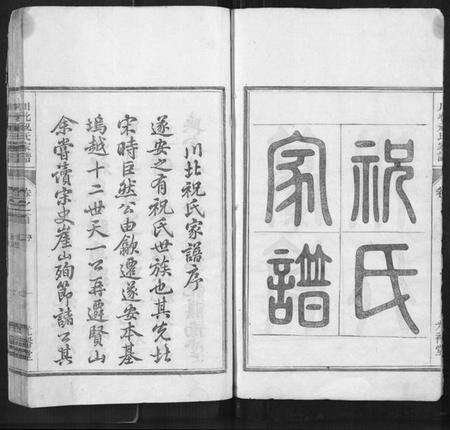 祝氏
家譜
川北祝氏家譜序
遂安之有祝氏世族也其先壯
宋時巨然公由歙遷遂安本基
塢越十二世天一公再遷賢山
余嘗讀宋史崖山殉節諸公其
川北祝氏家譜